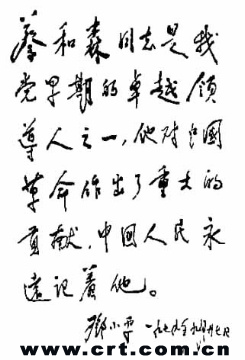 蔡和森同志是我
党早期的卓越领
导人之一，他对中國
革命作出了重大的
貢献，中国人民永
远记着他。
鄧小平 一九七九年
www.crt.com.cn